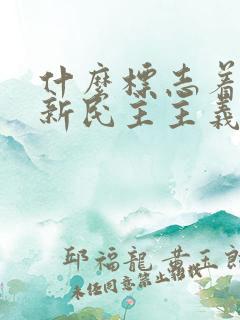 什麼標志着
新民主主義
邱福龍黃玉郎
未经同意禁止转载